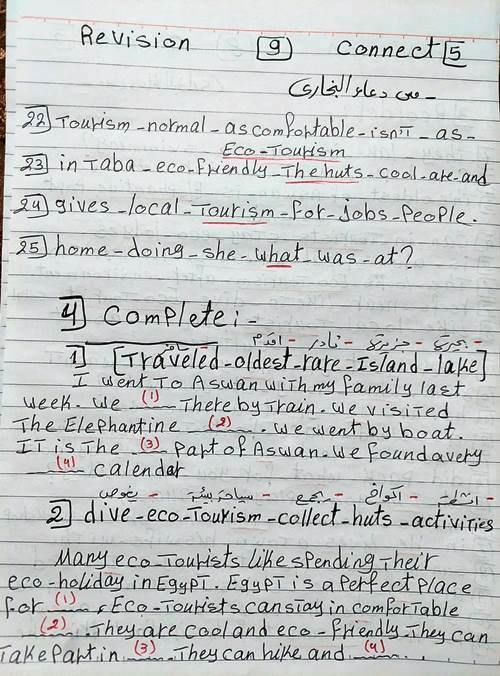 Revision 9 Connect 5
من دعاء البخارى -
22 Tourism - normal - as comfortable - isn't - as -
Eco-Tourism
23 in Taba - eco-friendly - The huts - cool - are - and
24 gives - local - Tourism - for - jobs - people.
25 home - doing - she - what - was - at?
4 Complete :-
بحيرة - جزيرة - نادر - اقدم
1 [Traveled - oldest - rare - Island - lake]
I went To Aswan with my family last
week. We (1) There by Train. We visited
The Elephantine (2) . We went by boat.
IT is The (3) part of Aswan. We found a very
(4) calendar
انشطة - اكواخ - يجمع - سياحة بيئية - يغوص
2 dive - eco-Tourism - collect - huts - activities
Many eco-Tourists like spending Their
eco-holiday in Egypt. Egypt is a perfect place
for (1) . Eco-Tourists can stay in comfortable
(2) . They are cool and eco-friendly. They can
Take part in (3) . They can hike and (4) .